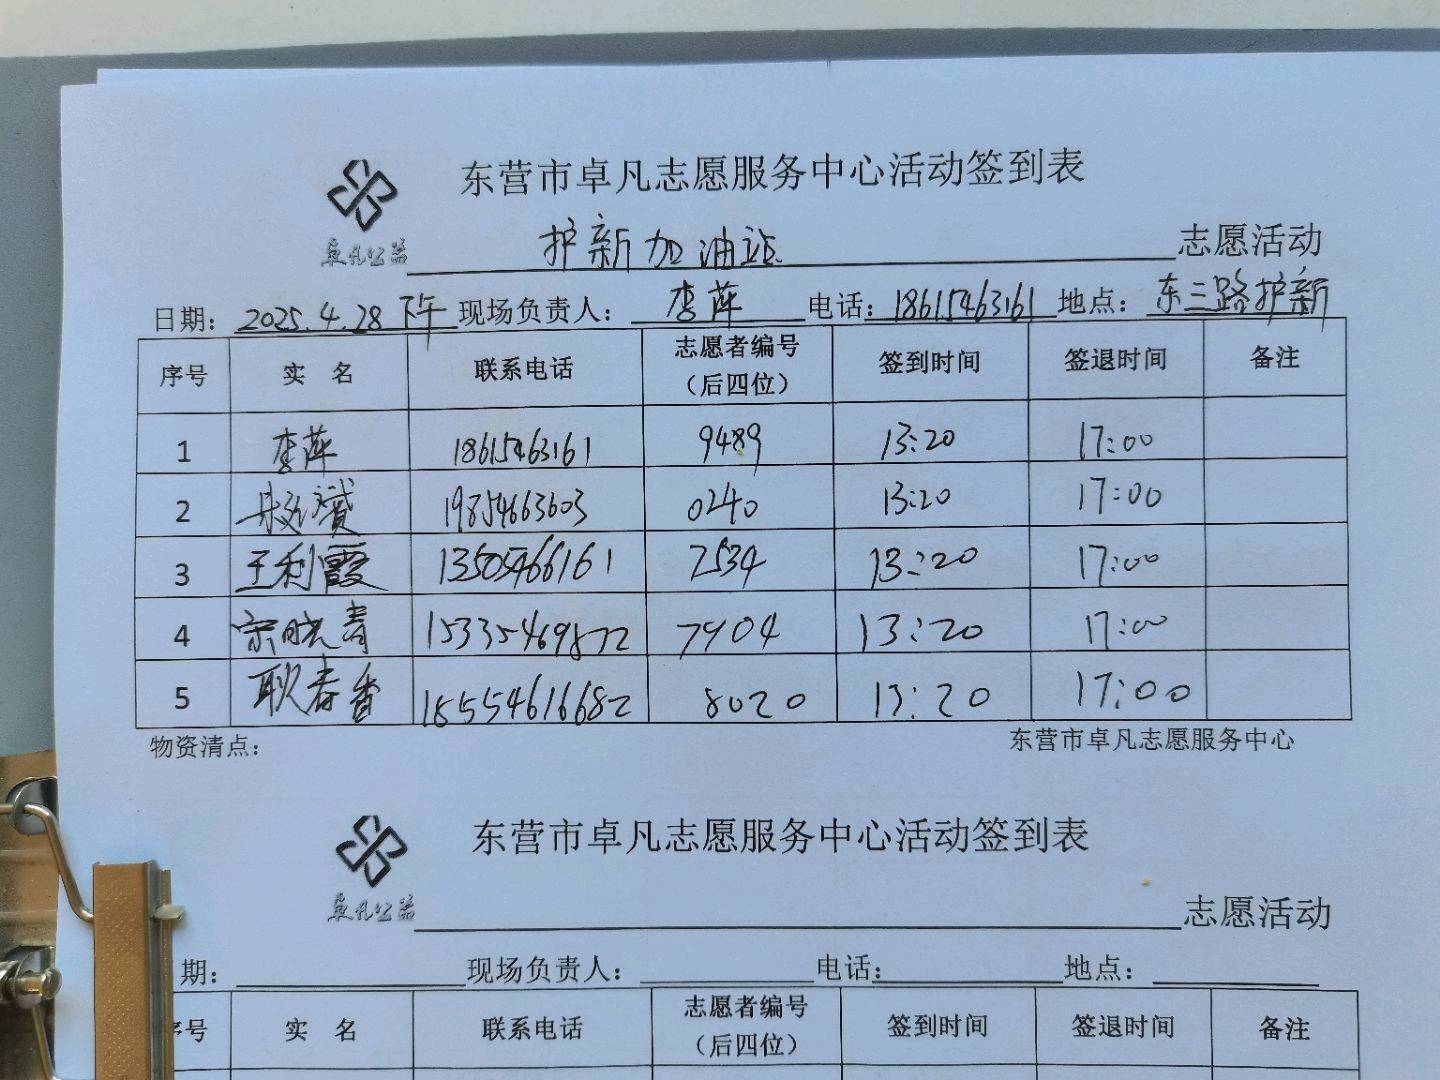 东营市卓凡志愿服务中心活动签到表
卓凡公益 护新加油站 志愿活动
日期: 2025.4.28 下午 现场负责人: 李萍 电话: 18615463161 地点: 东三路护新
序号 实 名 联系电话 志愿者编号（后四位） 签到时间 签退时间 备注
1 李萍 18615463161 9489 13:20 17:00
2 19854663603 0240 13:20 17:00
3 王利霞 13505466161 2534 13:20 17:00
4 宗晓青 15335469872 7904 13:20 17:00
5 耿春香 15554616682 8020 13:20 17:00
物资清点: 东营市卓凡志愿服务中心
东营市卓凡志愿服务中心活动签到表
卓凡公益 志愿活动
期: 现场负责人: 电话: 地点:
序号 实 名 联系电话 志愿者编号（后四位） 签到时间 签退时间 备注